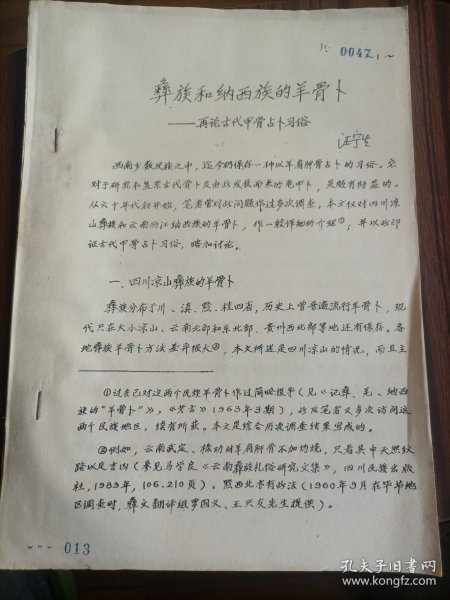 0047
彝族和纳西族的羊骨卜
——再论古代甲骨占卜习俗
汪宁生
西南少数民族之中，迄今仍保存一种以羊肩胛骨占卜的习俗。它
对于研究和复原古代骨卜及由此发展而来的龟甲卜，是颇有助益的。
从六十年代初开始，笔者曾对此问题作过多次调查。本文仅对四川凉
山彝族和云南丽江纳西族的羊骨卜，作一较详细的介绍①；并以此印
证古代甲骨占卜习俗，略加讨论。
一、四川凉山彝族的羊骨卜
彝族分布于川、滇、黔、桂四省，历史上曾普遍流行羊骨卜，现
代只在大小凉山、云南北部和东北部、贵州西北部等地还有保存。各
地彝族羊骨卜方法差异很大②，本文所述是四川凉山的情况，而且主
①过去已对这两个民族羊骨卜作过简略报导（见《记彝、羌、纳西
族的“羊骨卜”》，《考古》1963年3期），此后笔者又多次访问这
两个民族地区，续有所获。本文是综合历次调查结果写成的。
②例如，云南武定、禄劝对羊肩胛骨不加灼烧，只看其中天然纹
路以定吉凶（参见马学良《云南彝族礼俗研究文集》，四川民族出版
社，1983年，106、210页）。黔西北亦有此法（1960年9月在毕节地
区调查时，彝文翻译组罗国义、王兴友先生提供）。
013
孔夫子旧书网
www.kongfz.com